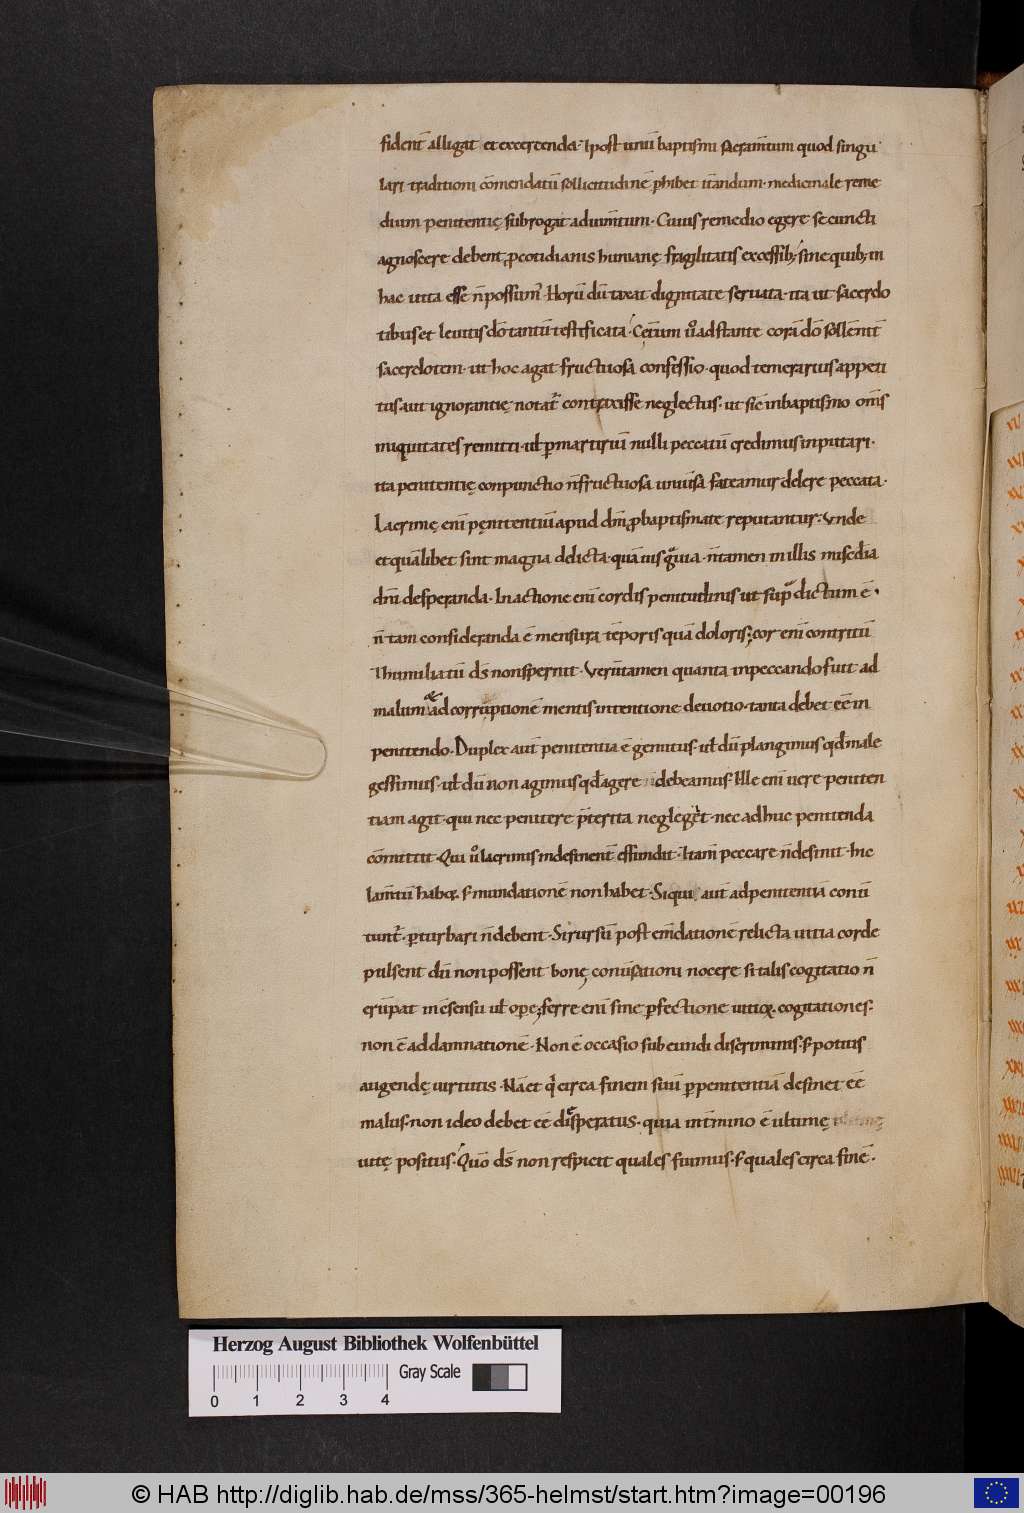 fident̄ alligat et exercenda. I post unū baptismi sacram̄tum quod singu
lari traditioni cōmendatū sollicitudinē phibet it̄andum. medicinale reme
dium penitentię subrogat adiuum̄tum. Cuius remedio egere se cuncti
agnoscere debent, p cotidianis humanę fragilitatis excessib; sine quib; in
hac uita esse n̄ possum᷒. Horū dū taxat dignitate seruata. ita ut sacerdo
tibus et leuitis dō tantū testificata. Cęt̄um u͛o adstante corā dō sollēnit̄
sacerdotem. ut hoc agat fructuosa confessio. quod temerarius appeti
tus aut ignorantię notat᷒ contraxisse neglectus. ut sic in baptismo om̄s
iniquitates remitti. ut pmartiriū nulli peccatū credimus inputari.
ita penitentię conpunctio n̄ fructuosa uniu͛sa fateamur delere peccata.
Lacrimę enī pęnitentiū apud dn̄m pbaptismate reputantur. Unde
et quālibet sint magna delicta. quā uis gͣuia. n̄ tamen in illis miscd̄ia
dn̄i desperanda. In actione enī cordis penitudinis ut supͣ dictum ē.
n̄ tam consideranda ē mensura tēporis quā doloris; cor enī contritū
I humiliatū ds̄ non spernit. Verūtamen quanta in peccando fuit ad
malum que ad corruptionē mentis intentione deuotio. tanta debet eē in
penitendo. Duplex aut̄ penitentia ē gemitus. ut dū plangimus qd̄ male
gessimus. ut dū non agimus qd̄ agere debeamus. Ille enī uere peniten
tiam agit. qui nec penitere pt̄erita neglegͤt. nec adhuc penitenda
cōmittit. Qui u͛o lacrimis indesinent̄ effundit. I tam̄ peccare n̄ desinit. hic
lam̄tū habet. S mundationē non habet. Siqui aut̄ ad penitentiā conu͛
tunt᷒. pturbari n̄ debent. Si rursū post em̄dationē relicta uitia corde
pulsent dū non possent bonę conu͛sationi nocere si talis cogitatio n̄
erūpat in ēsensū ut ope; ferre enī sine pfectione uitioꝝ cogitationes.
non ē ad damnationē. Non ē occasio subeundi discriminis. S potius
augendę uirtutis. Nā et qͥ circa finem suū p penitentiā desinet eē
malus. non ideo debet eē disperatus. quia in t̄mino ē ultimę
uitę positus. Qm̄ ds̄ non respicit quales fuimus. S quales circa finē.
Herzog August Bibliothek Wolfenbüttel
Gray Scale
0 1 2 3 4
© HAB http://diglib.hab.de/mss/365-helmst/start.htm?image=00196